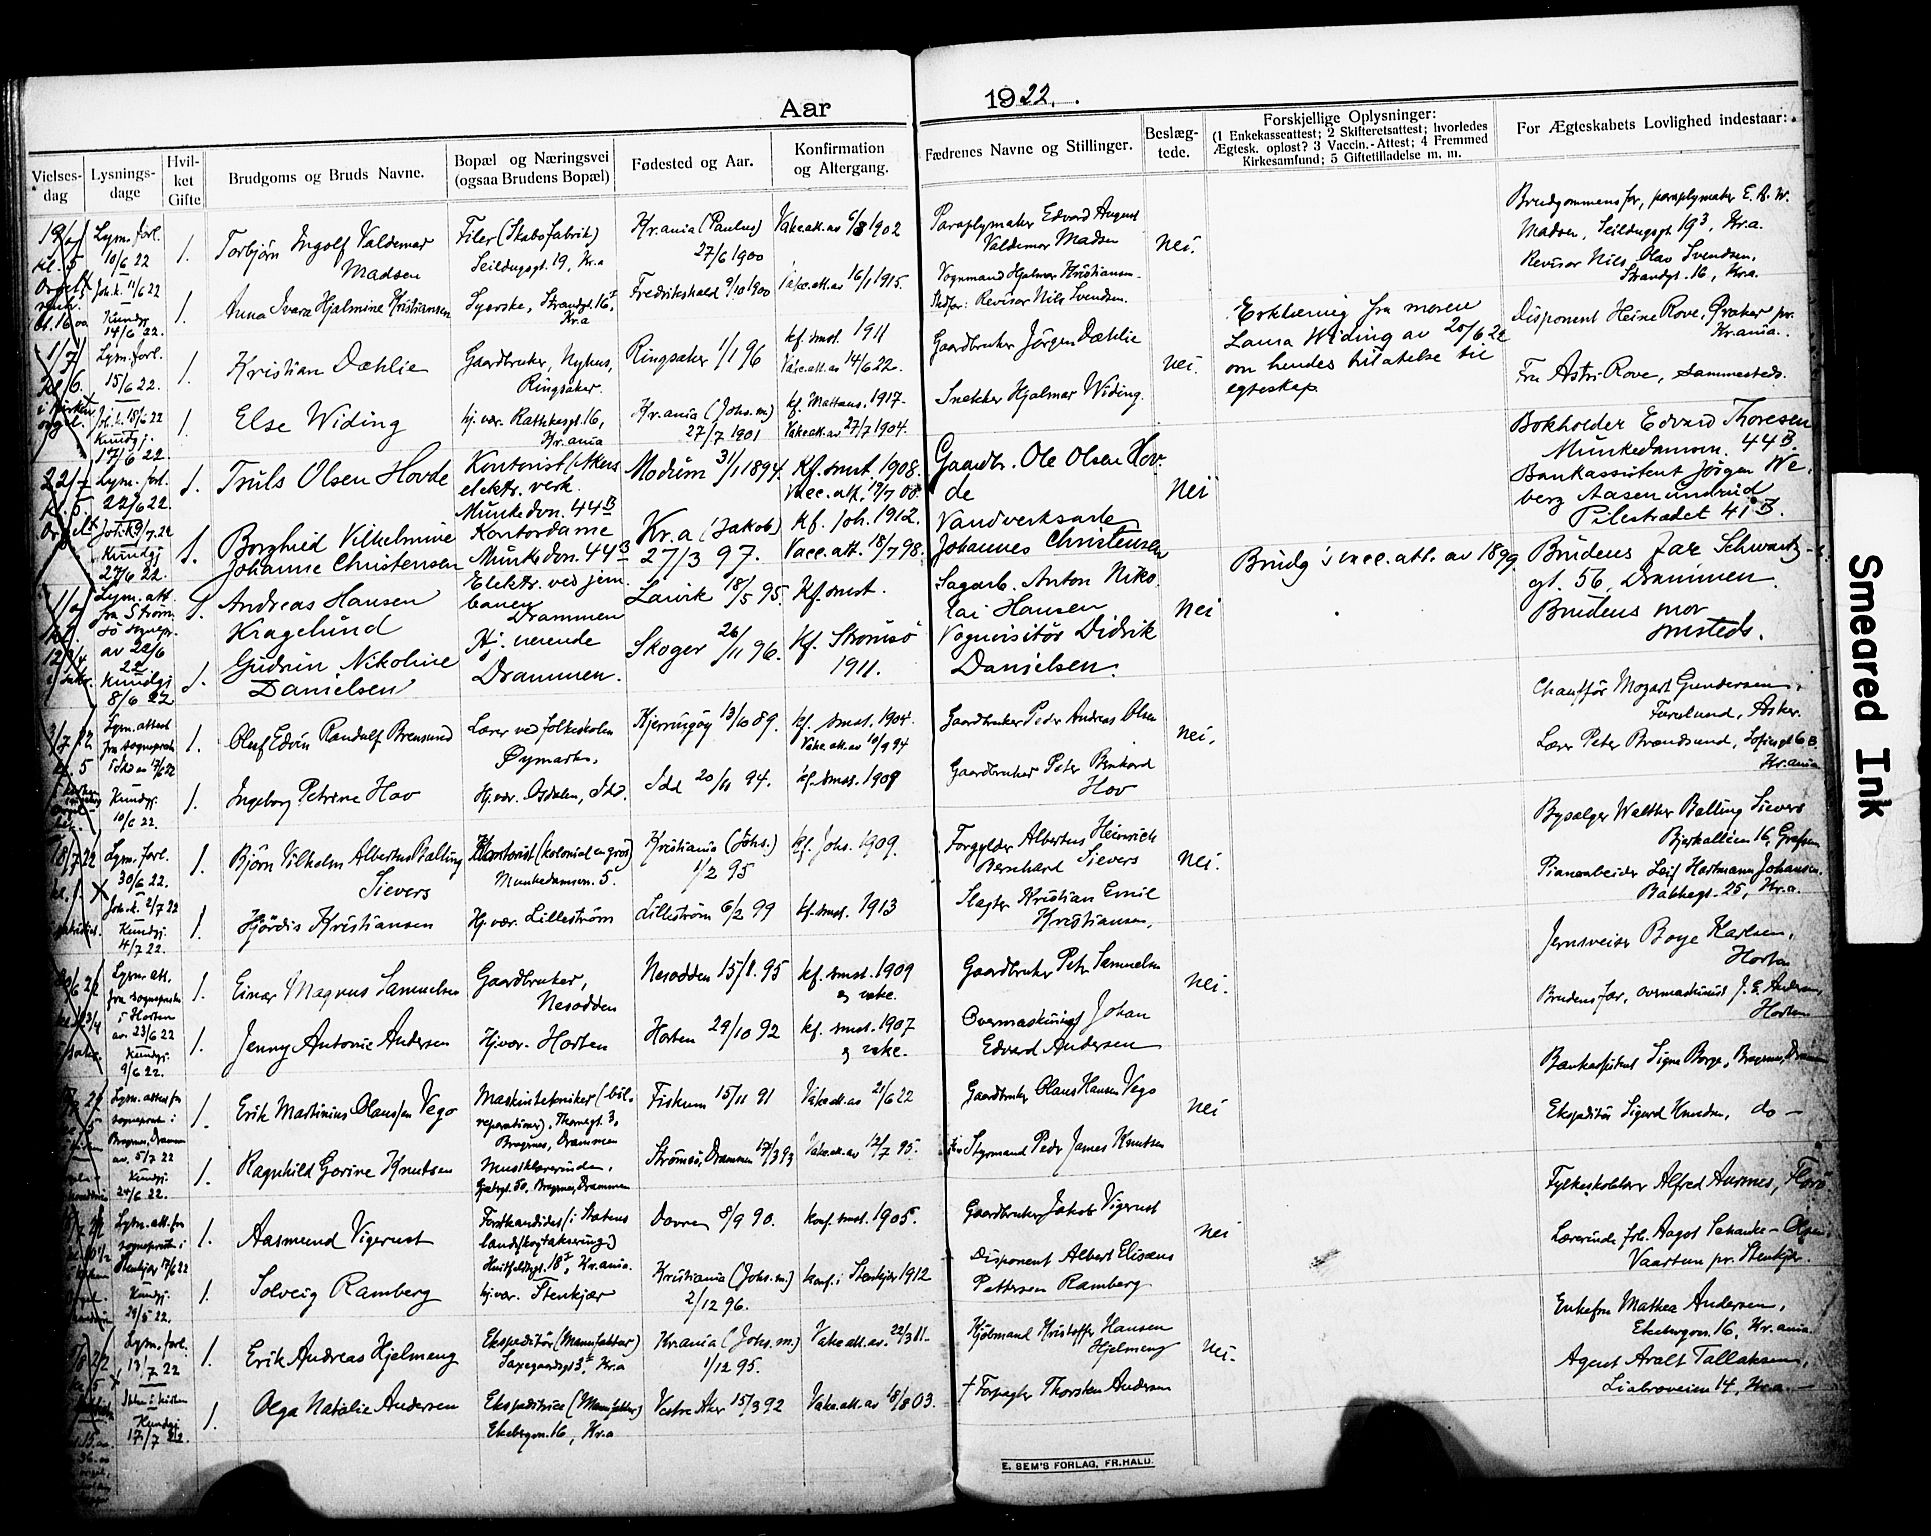 Aar 1922.
Vielses-dag
Lysnings-dage
Hvil-ket Gifte
Brudgoms og Bruds Navne.
Bopæl og Næringsvei (ogsaa Brudens Bopæl)
Fødested og Aar.
Konfirmation og Altergang.
Fædrenes Navne og Stillinger.
Beslæg-tede.
Forskjellige Oplysninger:
(1 Enkekasseattest; 2 Skifteretsattest; hvorledes
Ægtesk. opløst? 3 Vaccin.-Attest; 4 Fremmed
Kirkesamfund; 5 Giftetilladelse m. m.
For Ægteskabets Lovlighed indestaar:
Lysn. forl. 10/6 22
Joh.k. 11/6 22
Kundgj. 14/6 22.
1. Torbjörn Ingolf Valdemar Madsen
Filer (Skabsfabrik) Seildugsgt. 19, Kr.a
Kr.ania (Paulus) 27/6 1900
Vakc.att. av 6/8 1902
Paraplymaker Edvard August Valdemar Madsen
nei.
Brudgommens far, paraplymaker E. A. W. Madsen, Seildugsgt. 19³, Kr.a.
1. Anna Ivara Hjalmine Kristiansen
Syerske, Strandgt. 16 I Kr.a
Fredrikshald 9/10 1900
Vakc.att. av 16/1 1915.
Vognmand Hjalmar Kristiansen.
Stedfar: Revisor Nils Svendsen.
Revisor Nils Olav Svendsen, Strandgt. 16, Kr.a.
1/7 kl. 6.
Lysn. forl. 15/6 22.
Joh.k. 18/6 22
Kundgj. 17/6 22.
1. Kristian Dæhlie
Gaardbruker, Nyhus, Ringsaker.
Ringsaker 1/1 96
kf. smst. 1911
Vakc.att. av 14/6 22.
Gaardbruker Jörgen Dæhlie
nei.
Erklæring fra moren Laura Widing av 20/6 22 om hendes tilatelse til egteskap.
Disponent Heine Rove, Øraker pr. Kr.ania.
1. Else Widing
hj.vær. Rathkesgt. 16, Kr.ania
Kr.ania (Johs.m.) 27/7 1901
kf. Matteus, 1917.
Vakc.att. av 27/7 1904.
Snekker Hjalmar Widing.
Fru Astri Rove, sammesteds.
22/7 kl. 5.
Lysn. forl. 22/6 22.
Joh.k. 9/7 22
Kundgj. 27/6 22.
1. Truls Olsen Hovde
Kontorist (Akers elektr. verk. Munkedvn. 44 B
Modum 31/1 1894.
Kf. smst. 1908.
Vacc. att. 19/7 00.
Gaardbr. Ole Olsen Hovde
Nei
Bokholder Edvard Thoresen Munkedamsvn. 44 B.
1. Borghild Vilhelmine Johanne Christensen
Kontordame Munkedvn. 44 B
Kr.a (Jakob) 27/3 97.
Kf. Joh. 1912.
Vacc. att. 18/7 98.
Vandverksarb. Johannes Christensen
Bankassistent Jörgen Weberg Aasenundrud Pilestrædet 41 B.
Lysn. att. fra Strömsö sognepr. av 22/6 22.
Kundgj 8/6 22
1. Andreas Hansen Kragelund
Elektr. ved jernbanen Drammen
Larvik 18/5 95.
Kf. smst.
Sagarb. Anton Nikolai Hansen
Nei
Brudg's vacc. att. av 1899
Brudens far Schwartz gt. 56, Drammen.
1. Gudrun Nikoline Danielsen
Hj. værende Drammen.
Skoger 26/11 96.
Kf. Strömsö 1911.
Vognvisitör Didrik Danielsen.
Brudens mor smsteds.
2/7 22 kl. 5
Lysn. attest fra sogneprest i Idd av 17/6 22
Kundgj. 10/6 22.
1. Oluf Edvin Randulf Brensund
Lærer ved folkeskolen Øymark.
Kjerringöy 13/10 89.
kf. smst. 1904.
Vakc.att. av 10/9 94
Gaardbruker Peder Andreas Olsen
nei.
Chauffør Mozart Gundersen, Furulund, Asker.
1. Ingeborg Petrine Hov
Hj.vær. Asdalen, Idd.
Idd 20/11 94.
kf. smst. 1909
Gaardbruker Peter Bernhard Hov
Lærer Peter Brændsund, Sofiesgt 6 B, Kr.ania
18/7 22
Lysn. forl. 30/6 22.
Joh.k. 2/7 22
Kundgj. 4/7 22.
1. Björn Vilhelm Albertus Balling Sievers
Kontorist (kolonial en gros) Munkedamsvn. 5.
Kristiania (Johs.) 1/2 95
kf. Johs. 1909.
Forgylder Albertus Heinrich Bernhard Sievers
nei.
Bysælger Walther Balling Sievers Bjerkalléen 16, Grefsen
1. Hjördis Kristiansen
Hj.vær. Lilleström
Lilleström 6/2 99
kf. smst. 1913
Slagter Kristian Emil Kristiansen.
Pianoarbeider Leif Hartmann Johansen, Bakkegt. 25, Kr.a.
Lysn. att. fra sogneprest i Horten av 23/6 22
Kundgj. 9/6 22.
1. Einar Magnus Samuelsen
Gaardbruker, Nesodden
Nesodden 15/8. 95
kf. smst. 1909 og vakc.
Gaardbruker Petr. Samuelsen
nei.
Jernsveiser Boye Karlsen, Horten
1. Jenny Antonie Andersen
Hj.vær. Horten
Horten 29/10 92
kf. smst. 1907 og vakc.
Overmaskinist Johan Edvard Andersen
Brudens far, overmaskinist J. E. Andersen, Horten
Lysn. attest fra sogneprest i Bragernes, Drammen av. 5/7 22
Kundgj. 24/6 22.
1. Erik Martinius Olaussen Vego
Maskintekniker (bilreparationer), Thornegt. 3, Bragernes, Drammen
Fiskum 15/11 91
Vakc.att. av 21/6 22
Gaardbruker Olaus Hansen Vego
nei
Bankassistent Signe Borge, Bragernes, Drammen
1. Ragnhild Gorine Knutsen
Musiklærerinde, Gjetergt. 50, Bragernes, Drammen
Strömsö, Drammen 17/3 93
Vakc.att. av 12/7 95.
Styrmand Peder James Knutsen
Ekspeditör Sigurd Knudsen, do —
Lysn. att. fra sogneprest i Stenkjær 17/6 22
Kundgj. 29/5 22.
1. Aasmund Vigerust
Forstkandidat (i Statens landsskogtaksering) Huitfeldtsgt. 18 I, Kr.ania.
Dovre 8/9 90.
konf. smst. 1905.
Gaardbruker Jakob Vigerust
nei
Fylkesskoglærer Alfred Aurenes, Florö
1. Solveig Ramberg
hj.vær. Stenkjær
Kristiania (Johs. m.) 2/12 96.
konf. i Stenkjær 1912
Disponent Albert Elisæus Pettersen Ramberg
Lærerinde frk. Aagot Schancke-Olsen, Vaartun pr. Stenkjær.
Lysn. forl. 13/7 22
Kundgj 17/7 22.
1. Erik Andreas Hjelmeng
Ekspeditör (Manufaktur) Saxegaardsgt 3 I, Kr.a
Kr.ania (Johs. m.) 1/12 95.
Vakc.att. av. 22/3 11.
Kjölmand Kristoffer Hansen Hjelmeng
nei.
Enkefru Mathea Andersen, Ekebergvn. 16, Kr.ania
1. Olga Natalie Andersen
Ekspeditrice (Manufaktur) Ekebergvn. 16, Kr.a
Vestre Aker 15/3 92
Vakc.att. av 18/8 03.
† Forpagter Thorsten Andersen
Agent Aralt Tallaksen, Liabroveien 14, Kr.a. —
E. SEM'S FORLAG, FR.HALD.
Smeared Ink